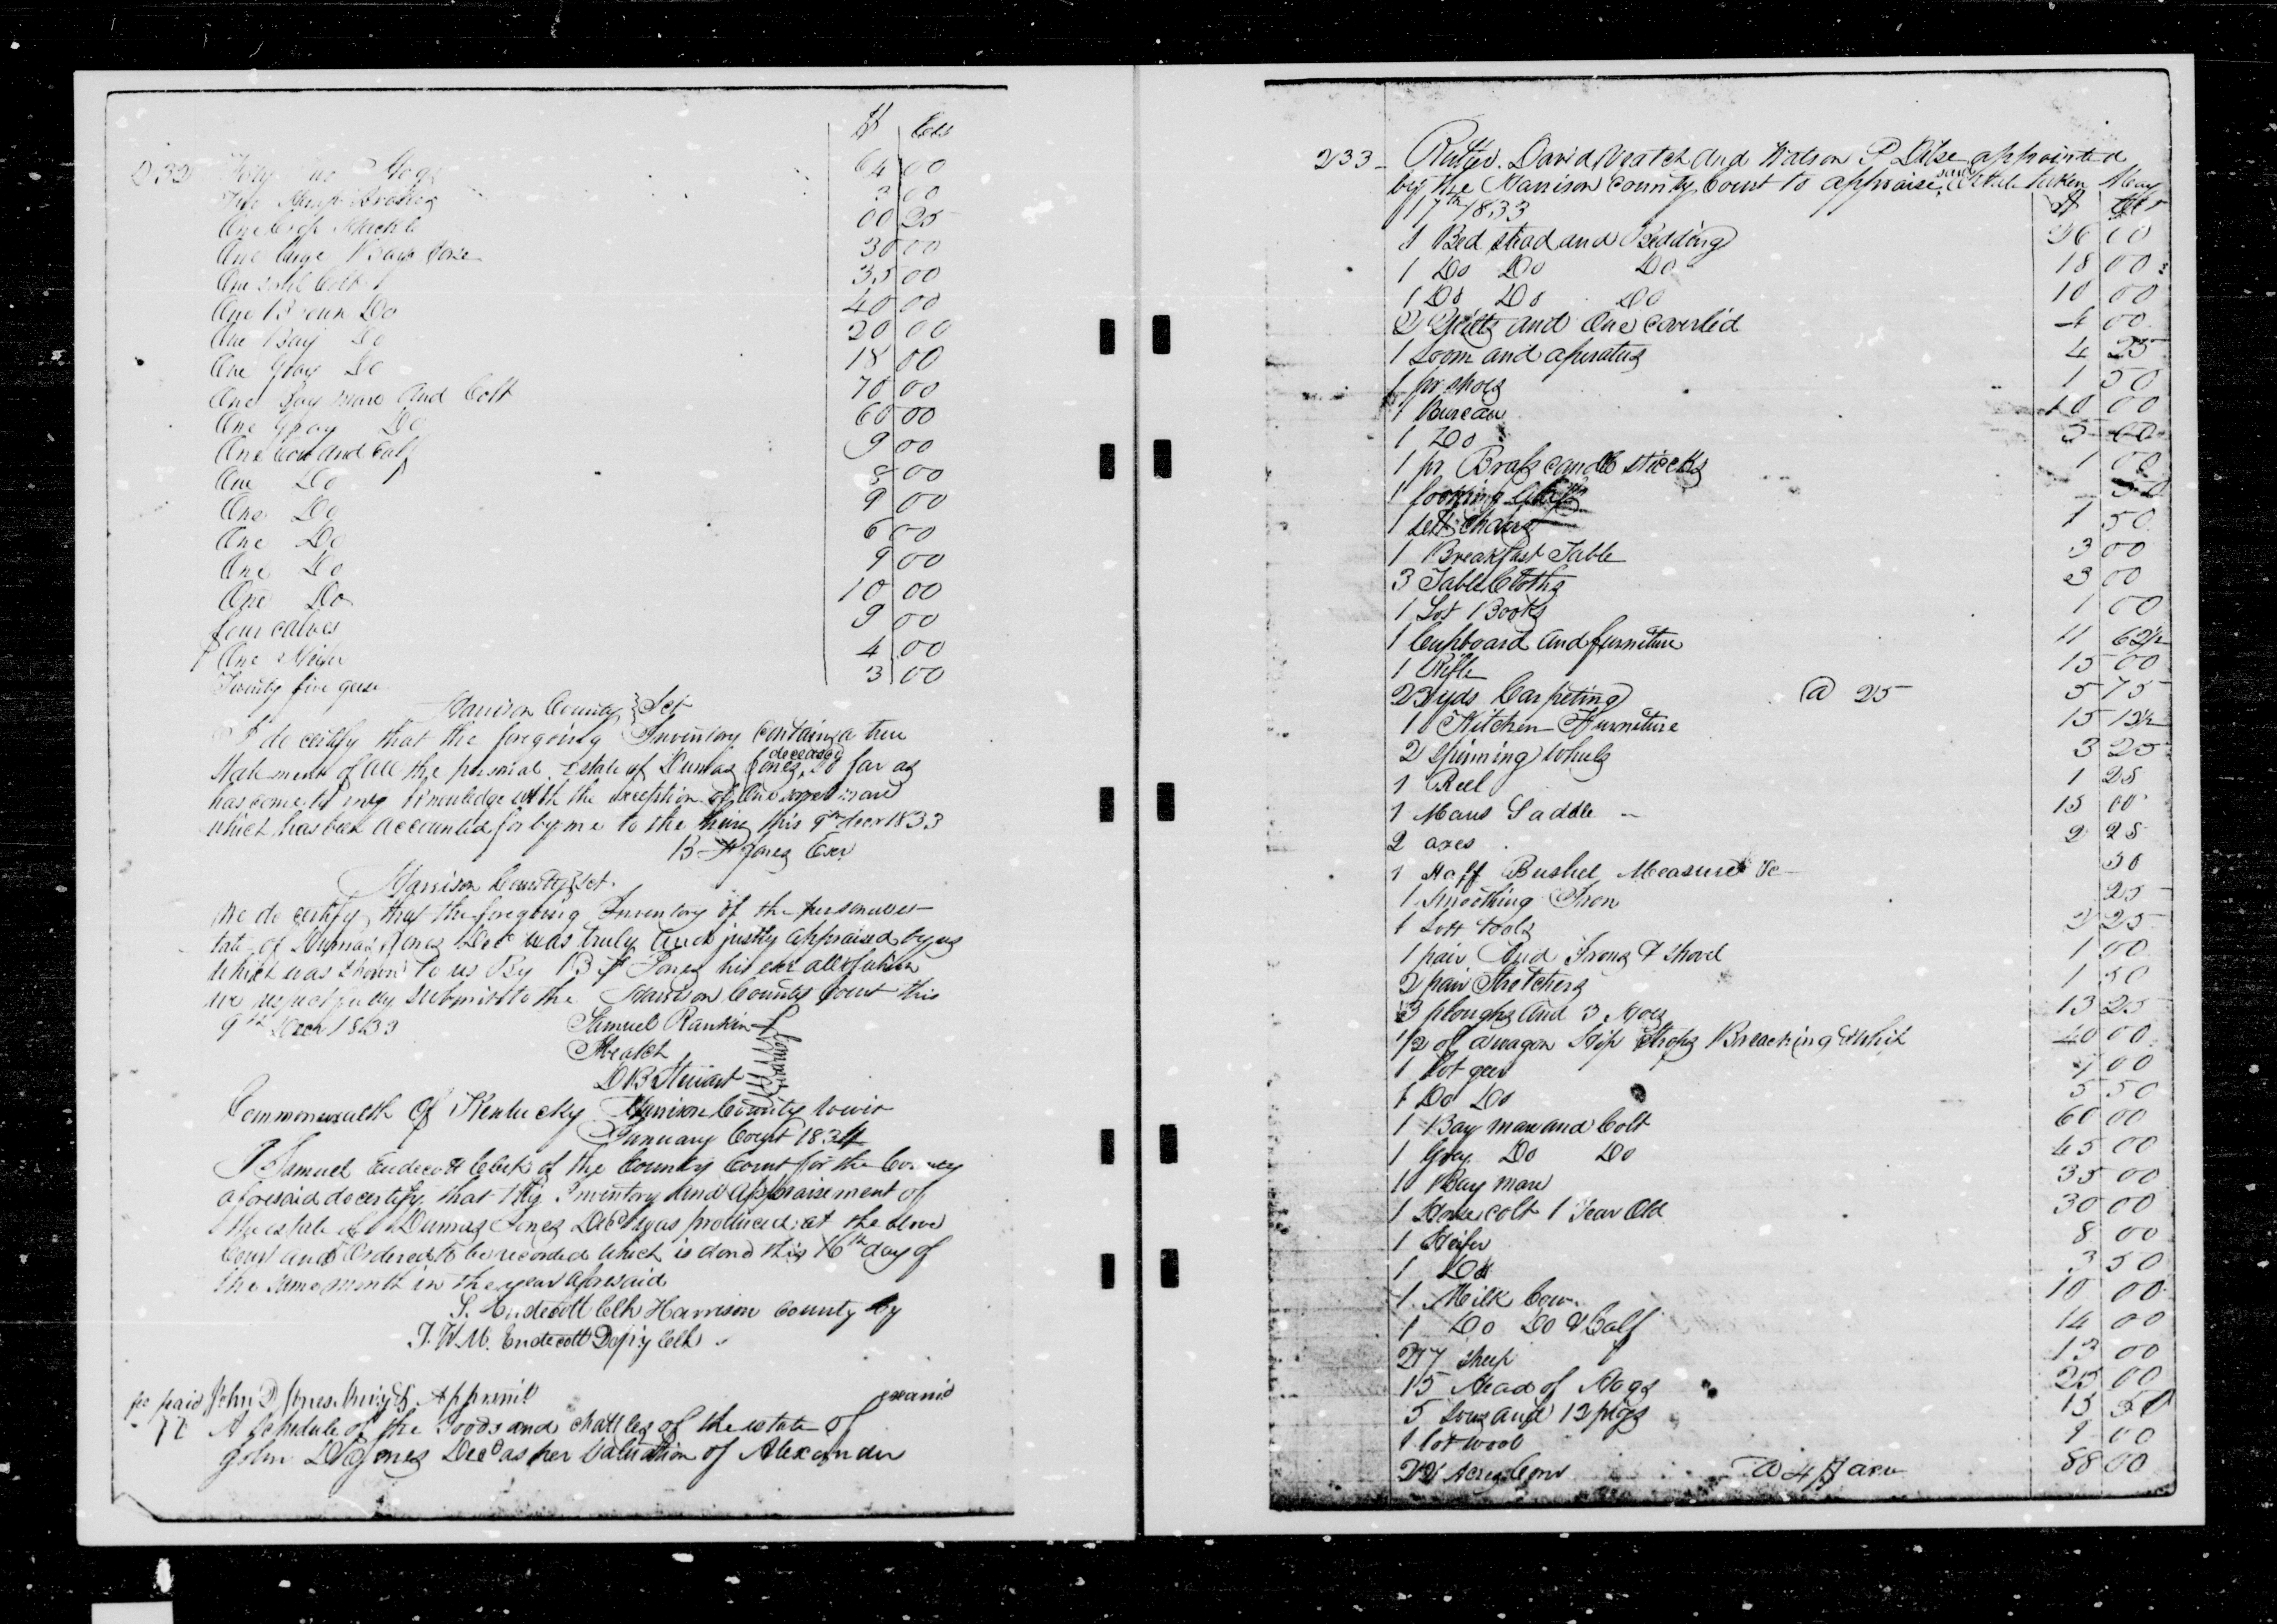 $ Cts
232 Forty two Hogs 64 00
Two Hemp Brakes 3 00
One Crop Sickle 00 25
One large Bay horse 30 00
One sorl Colt 35 00
One Brown Do 40 00
One Bay Do 20 00
One Gray Do 18 00
One Bay mare and Colt 70 00
One Gray Do 60 00
One Cow and Calf 9 00
One Do 8 00
One Do 9 00
One Do 6 00
One Do 9 00
One Do 10 00
four calves 9 00
One Heifer 4 00
Twenty five geese 3 00
Harrison County } Sct
I do certify that the foregoing Inventory contains a true
Statement of all the personal Estate of Dumas Jones deceased So far as
has come to my Knowledge with the exception of One sorrel mare
which has been accounted for by me to the heirs this 9th decr 1833
B F Jones Exr
Harrison County Sct.
We do certify that the foregoing Inventory of the personal es-
tate of Dumas Jones Decd was truly and justly appraised by us
which was shown to us By B F Jones his exr all of which
we respectfully submit to the Harrison County Court this
9th Decr 1833 Samuel Rankin
Heath
D B Stewart
Commonwealth Of Kentucky Harrison County towit
January Court 1834
I Samuel Endecott Clerk of the County Court for the County
aforesaid do certify that this Inventory and Appraisement of
the estate of Dumas Jones Decd was produced at the above
Court and Ordered to be recorded which is done this 16th day of
the same month in the year aforesaid
S. Endecott Clk Harrison County by
J. W. M. Endecott Depty Clk
fe paid John D Jones Invty & Appraismt examd
77 A Schedule of the Goods and Chattles of the estate of
John D Jones Decd as per Valuation of Alexander
233 Rutger David Veatch and Watson P Dike appointed
by the Harrison County Court to appraise said Estate taken May
17th 1833 $ Cts
1 Bed stead and Bedding 36 00
1 Do Do Do 18 00
1 Do Do Do 10 00
2 Quilts and One Coverlid 4 00
1 Loom and aperatus 4 25
1 pr shoes 1 50
1 Bureau 10 00
1 Do 5 00
1 pr Brass candle sticks 1 00
1 looking Glass 50
1 sett chairs 1 50
1 Breakfast Table 3 00
3 Table Cloths 3 00
1 Lot Books 1 00
1 Cupboard and furniture 11 62½
1 Rifle 15 00
23 yds Carpeting @ 25 5 75
1 Kitchen Furniture 15 12½
2 Spinning Wheels 3 25
1 Reel 1 25
1 Mans Saddle 15 00
2 axes 2 25
1 Half Bushel Measure &c 50
1 Smoothing Iron 25
1 Lott tools 2 25
1 pair And Irons & Shovel 1 00
2 pair Stretchers 1 50
3 ploughs and 3 Hoes 13 25
1/2 of a wagon Hip Straps Breaching & whip 40 00
1 lot geer 7 00
1 Do Do 5 50
1 Bay mare and Colt 60 00
1 Gray Do Do 45 00
1 Bay mare 35 00
1 Horse colt 1 Year Old 30 00
1 Heifer 8 00
1 Do 3 50
1 Milk Cow 10 00
1 Do Do & Calf 14 00
27 sheep 13 00
15 Head of Hogs 25 00
5 Sows and 12 pigs 15 50
1 lot wool 9 00
22 Acres Corn @ 4 $ acre 88 00